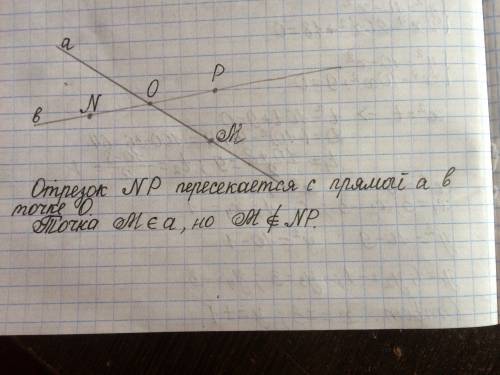 a
P
O
N
в
M
Отрезок NP пересекается с прямой a в
точке O.
Точка M ∈ a, но M ∉ NP.